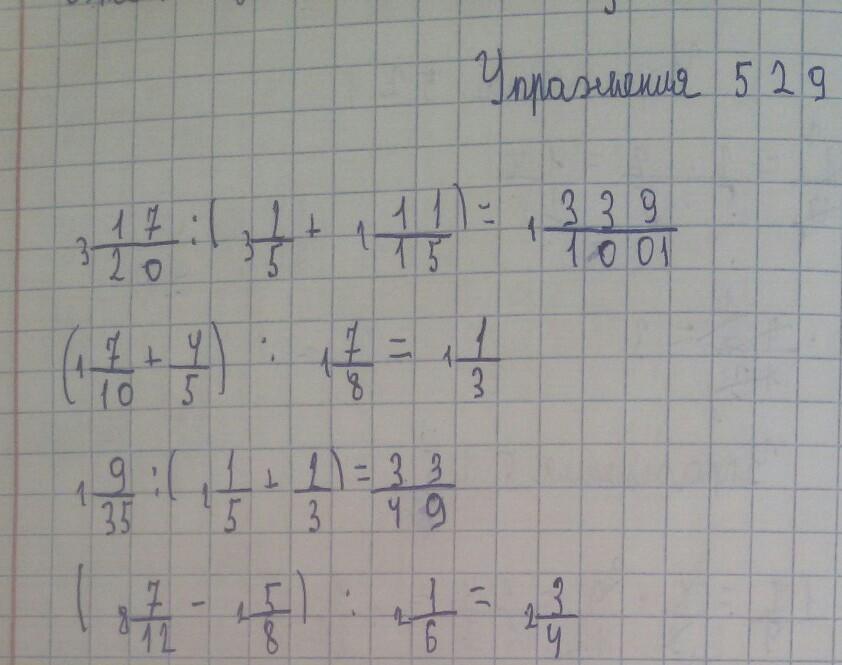 Упражнения 529
3 17/20 : (3 1/5 + 1 11/15) = 1 339/1001
(1 7/10 + 4/5) : 1 7/8 = 1 1/3
1 9/35 : (1 1/5 + 2/3) = 33/49
(8 7/12 - 2 5/8) : 2 1/6 = 2 3/4